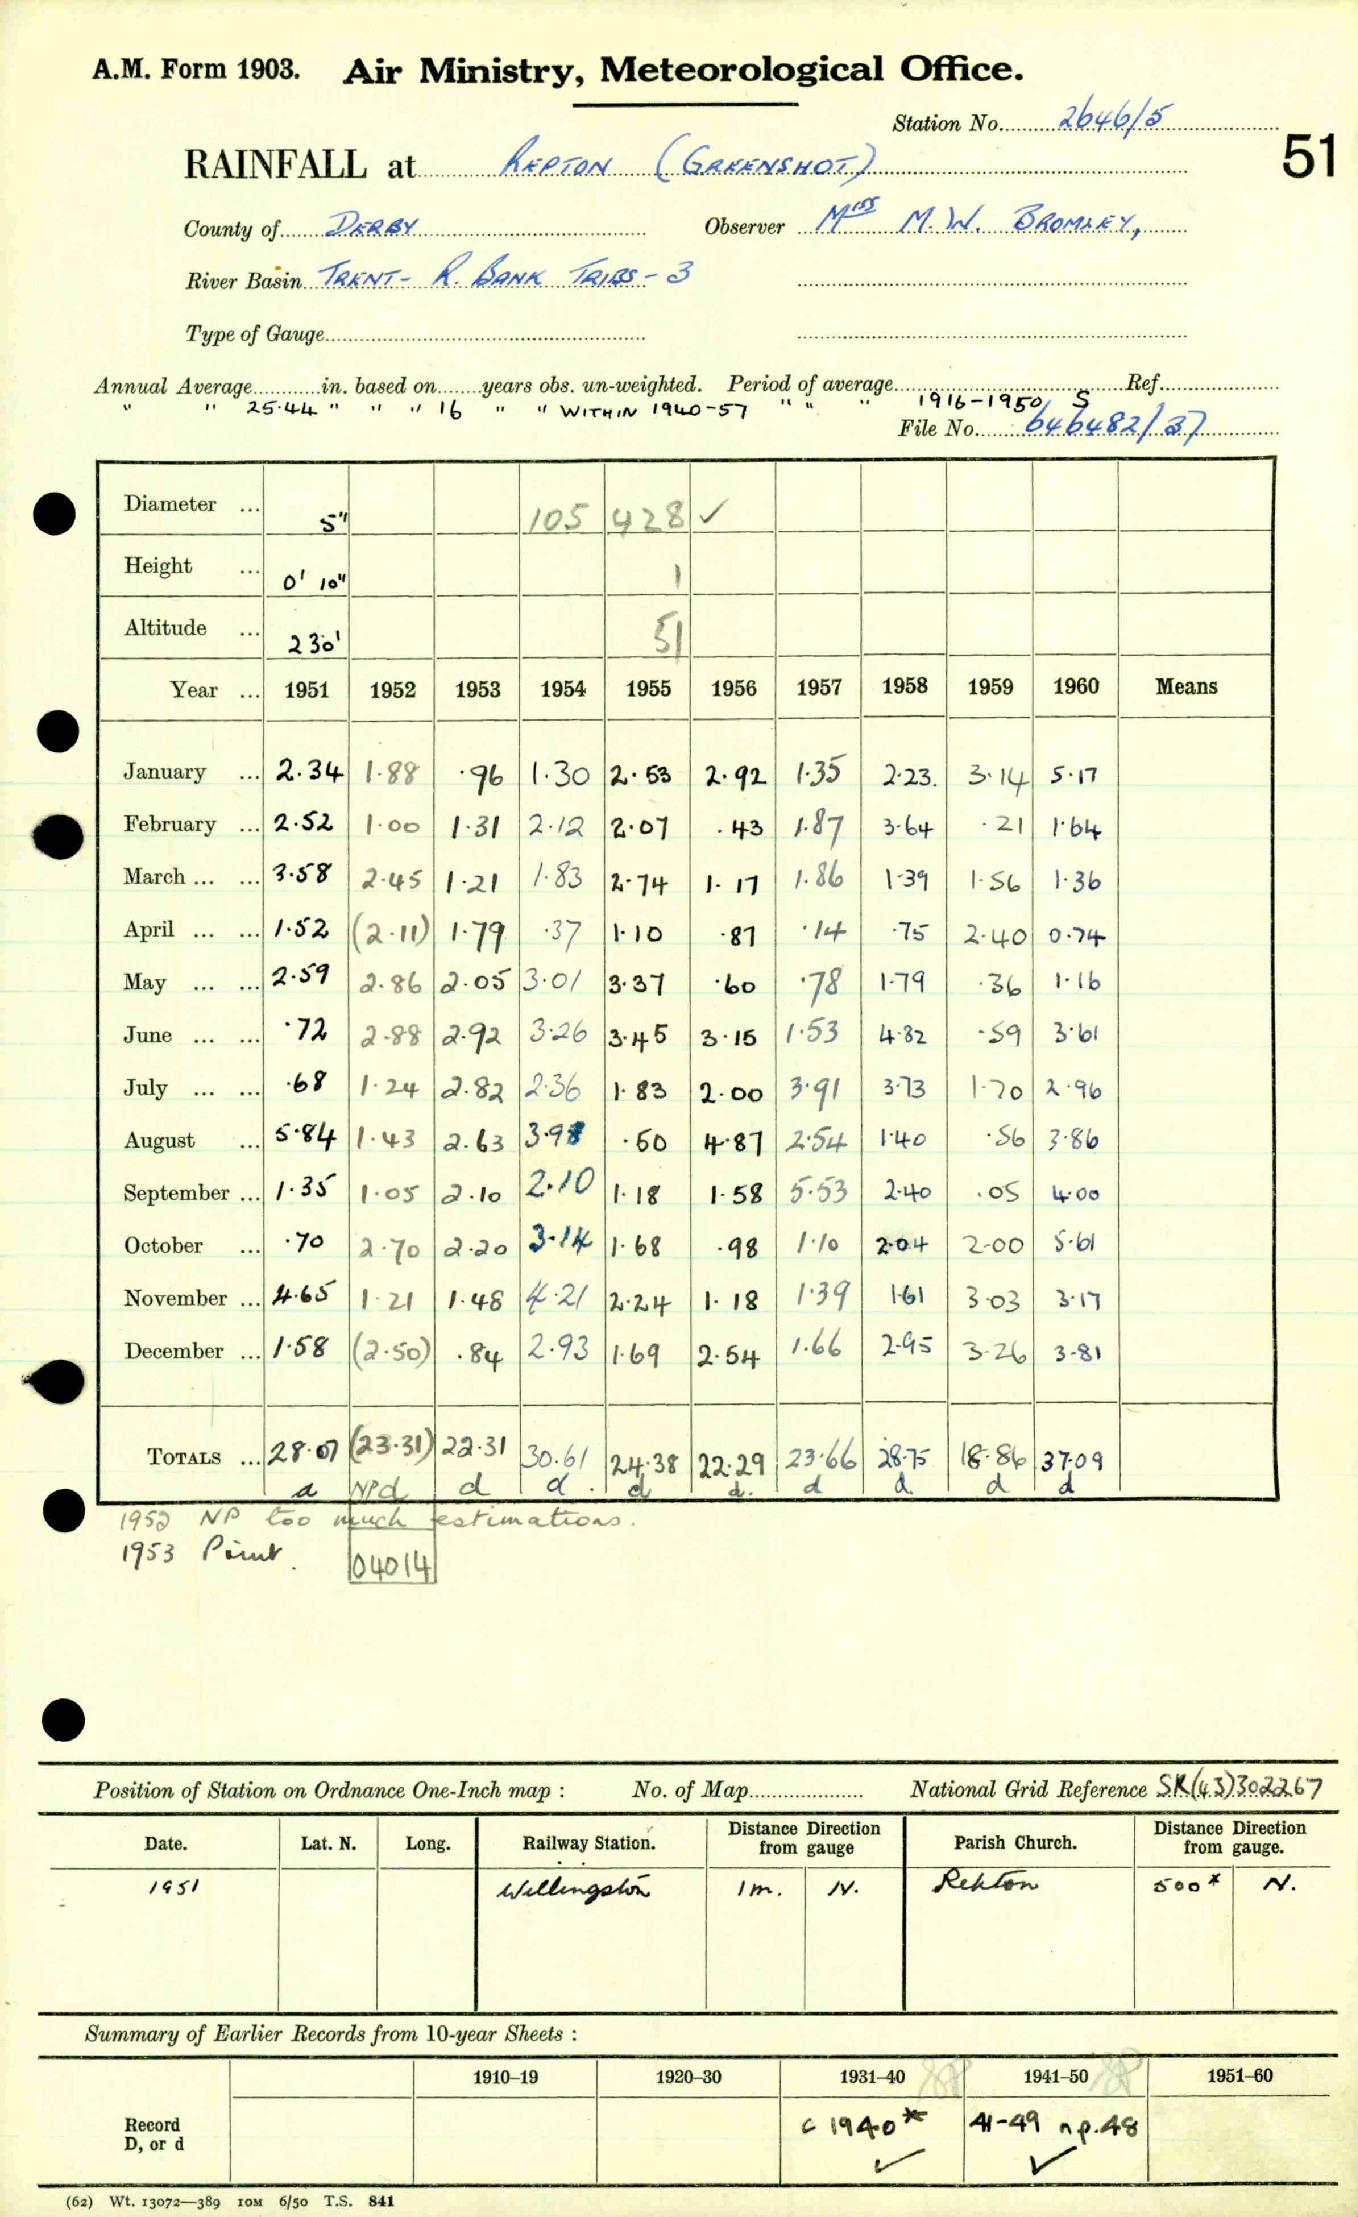 A.M. Form 1903. Air Ministry, Meteorological Office.
Station No. 2646/5
51
RAINFALL at REPTON (GREENSHOT)
County of DERBY Observer Miss M. W. BROMLEY,
River Basin TRENT - R. BANK TRIBS - 3
Type of Gauge
Annual Average in. based on years obs. un-weighted. Period of average Ref.
" " 25·44 " " " 16 " " WITHIN 1940-57 " " " 1916-1950 S
File No. 646482/37
Diameter ... 5" 105 428 ✓
Height ... 0' 10" 1
Altitude ... 230' 51
Year ... 1951 1952 1953 1954 1955 1956 1957 1958 1959 1960 Means
January ... 2·34 1·88 ·96 1·30 2·53 2·92 1·35 2·23. 3·14 5·17
February ... 2·52 1·00 1·31 2·12 2·07 ·43 1·87 3·64 ·21 1·64
March ... ... 3·58 2·45 1·21 1·83 2·74 1·17 1·86 1·39 1·56 1·36
April ... ... 1·52 (2·11) 1·79 ·37 1·10 ·87 ·14 ·75 2·40 0·74
May ... ... 2·59 2·86 2·05 3·01 3·37 ·60 ·78 1·79 ·36 1·16
June ... ... ·72 2·88 2·92 3·26 3·45 3·15 1·53 4·82 ·59 3·61
July ... ... ·68 1·24 2·82 2·36 1·83 2·00 3·91 3·73 1·70 2·96
August ... 5·84 1·43 2·63 3·98 ·50 4·87 2·54 1·40 ·56 3·86
September ... 1·35 1·05 2·10 2·10 1·18 1·58 5·53 2·40 ·05 4·00
October ... ·70 2·70 2·20 3·14 1·68 ·98 1·10 2·04 2·00 5·61
November ... 4·65 1·21 1·48 4·21 2·24 1·18 1·39 1·61 3·03 3·17
December ... 1·58 (2·50) ·84 2·93 1·69 2·54 1·66 2·95 3·26 3·81
TOTALS ... 28·07 (23·31) 22·31 30·61 24·38 22·29 23·66 28·75 18·86 37·09
a NPd d d. d d. d d d d
1952 NP too much estimations.
1953 Point. 04014
Position of Station on Ordnance One-Inch map : No. of Map National Grid Reference SK(43)302267
Date. Lat. N. Long. Railway Station. Distance from Direction gauge Parish Church. Distance from Direction gauge.
1951 Willington 1m. N. Repton 500ˣ N.
Summary of Earlier Records from 10-year Sheets :
1910–19 1920–30 1931–40 1941–50 1951–60
Record
D, or d
c 1940* 41-49 np.48
✓ ✓
(62) Wt. 13072—389 10M 6/50 T.S. 841